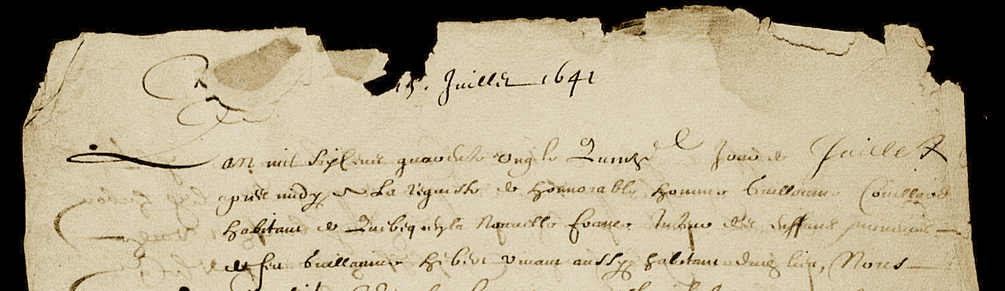 15. Juillet 1641
L'an mil six cens quarante ung le Quinzie Jour de Juillet
apres midy a La requeste de honnorable homme Guillaume Couillard
habitant de Quebeq en la Nouvelle France tuteur des enffans mineurs
de feu Guillaume hebert vivant aussy habitant dud lieu, Nous